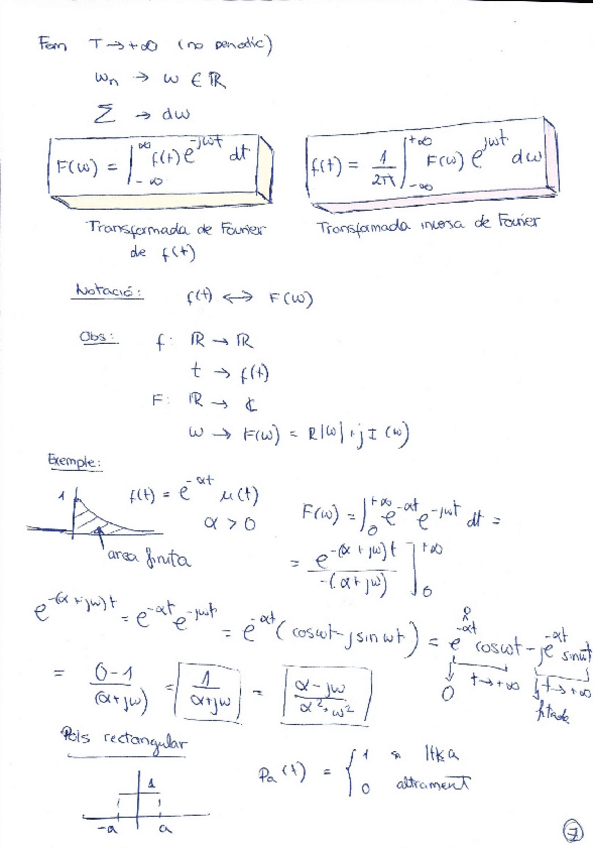 Fem T → +∞ (no periodic)
ωn → ω ∈ ℝ
Σ → dω
F(ω) = ∫_{-∞}^{∞} f(t) e^{-jωt} dt
f(t) = 1/2π ∫_{-∞}^{+∞} F(ω) e^{jωt} dω
Transformada de Fourier
de f(t)
Transformada inversa de Fourier
Notació: f(t) ↔ F(ω)
Obs: f: ℝ → ℝ
t → f(t)
F: ℝ → ℂ
ω → F(ω) = R(ω) + j I(ω)
Exemple:
1
f(t) = e^{-αt} μ(t)
α > 0
area finita
F(ω) = ∫_0^{+∞} e^{-αt} e^{-jωt} dt =
= e^{-(α+jω)t} / -(α+jω) ]_0^{+∞}
e^{-(α+jω)t} = e^{-αt} e^{-jωt} = e^{-αt} (cosωt - j sinωt) = e^{-αt} cosωt - j e^{-αt} sinωt
0 t→+∞ t→+∞
= 0-1 / (α+jω) = 1 / α+jω = α-jω / α²+ω²
Pols rectangular
1
-a a
Pa(t) = { 1 si |t|<a
0 altrament
7